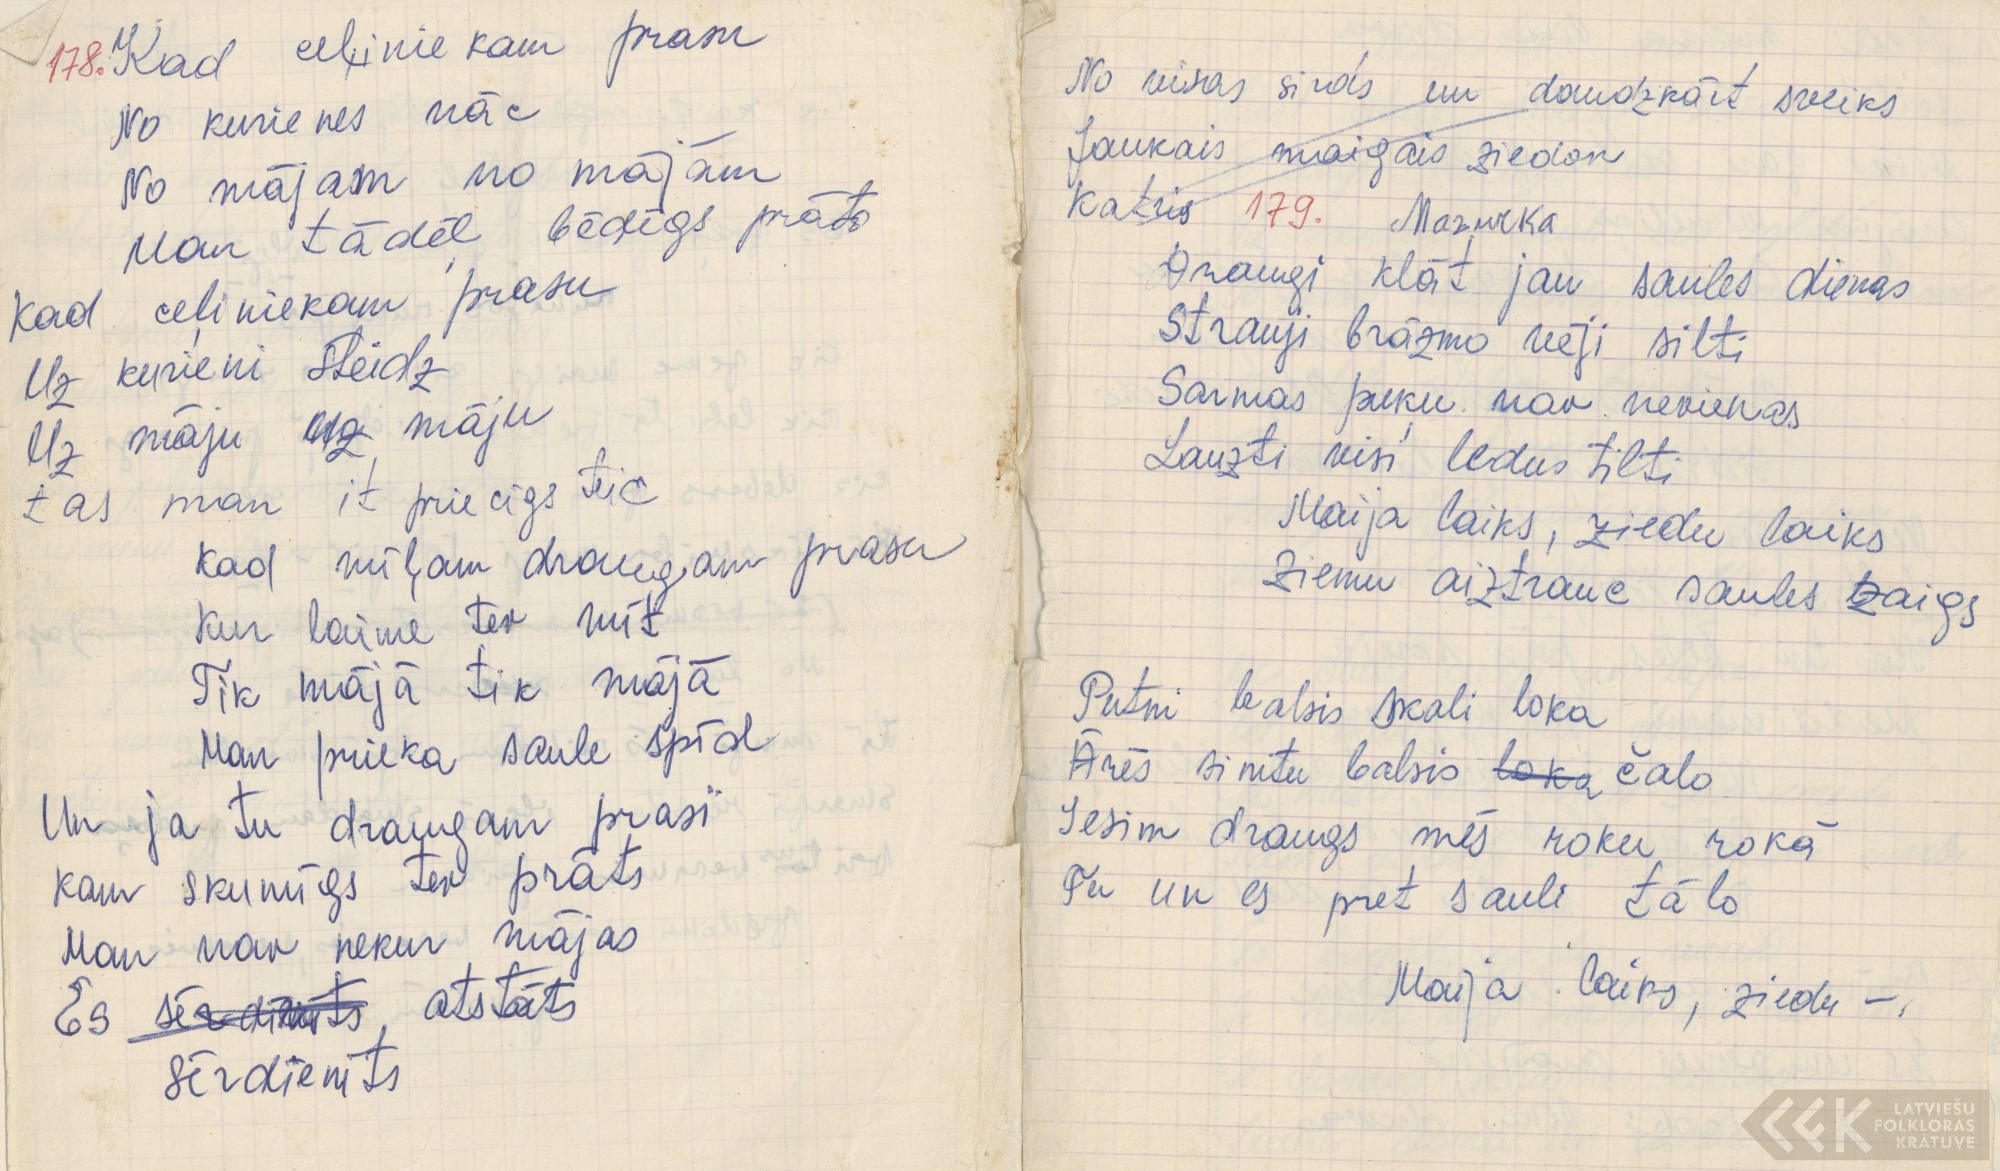 178. Kad ceļiniekam prasu
No kurienes nāc
No mājam no mājām
Man tādēļ bēdīgs prāts
Kad ceļiniekam prasu
Uz kurieni steidz
Uz māju uz māju
tas man it priecīgs teic
Kad mīļam draugam prasu
Kur laime tev mīt
Tik mājā tik mājā
Man prieka saule spīd
Un ja tu draugam prasi
Kam skumīgs tev prāts
Man nav nekur mājas
Es sērdinīts, atstāts
Sērdienīts
No visas sirds un daudzkārt sveiks
Jaukais maigais ziedon
Katris 179. Mazurka
Draugi klāt jau saules dienas
Strauji brāzmo vēji silti
Sarmas puķu nav nevienas
Lauzti visi ledus tilti
Maija laiks, ziedu laiks
Ziemu aiztrauc saules zaigs
Putni balsis skali loka
Ārēs simtu balsis loka čalo
Iesim draugs mēs roku rokā
Tu un es pret sauli tālo
Maija laiks, ziedu –,
LATVIEŠU
FOLKLORAS
KRĀTUVE